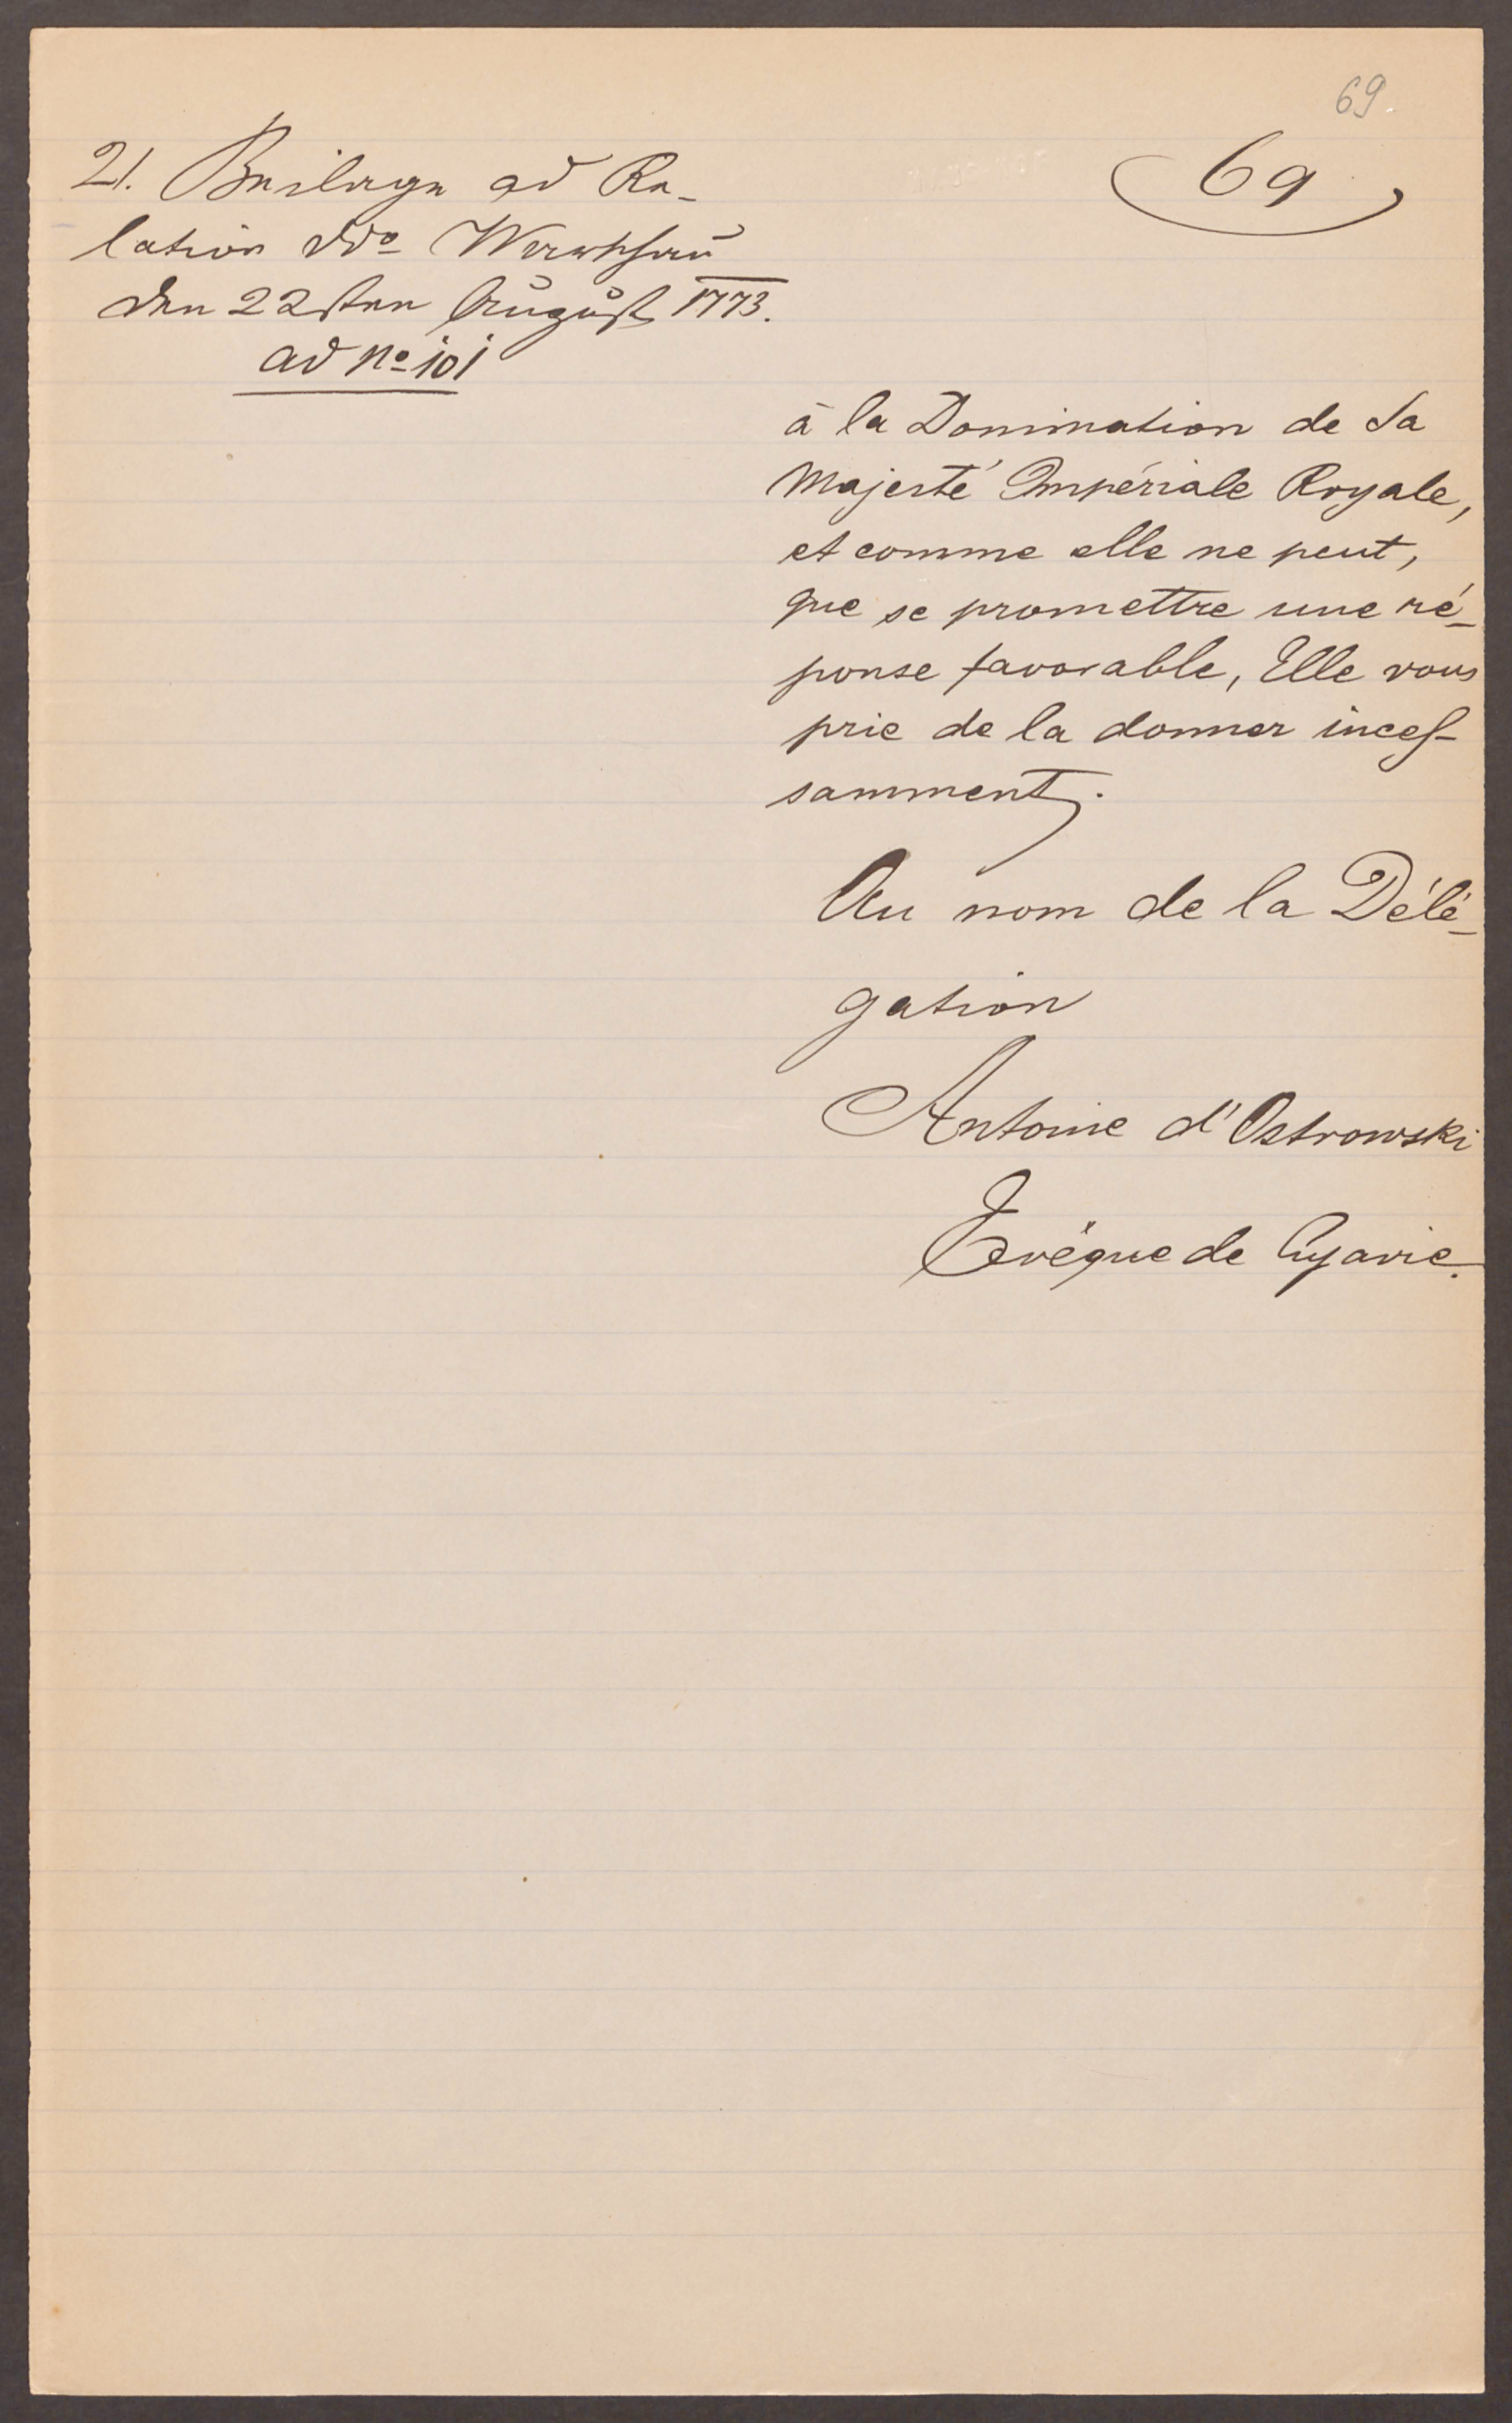 69.
69
21. Beilage ad Re-
lation ddo Warschau
den 22sten August 1773.
ad No 101
à la Domination de Sa
Majesté Impériale Royale,
et comme elle ne peut,
que se promettre une ré-
ponse favorable, Elle vous
prie de la donner inces-
samment.
Au nom de la Délé-
gation
Antoine d'Ostrowski
Evéque de Cujavie.